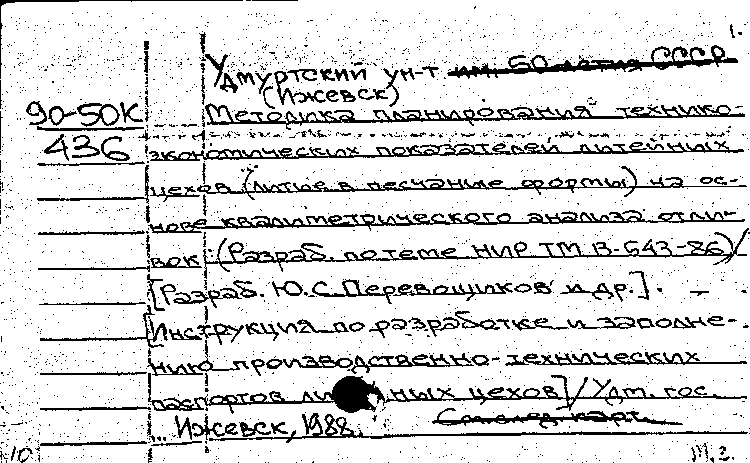 1.
Удмуртский ун-т им. 50-летия СССР
(Ижевск)
90-50К Методика планирования технико-
436 экономических показателей литейных
цехов (литье в песчаные формы) на ос-
нове квалиметрического анализа отли-
вок: (Разраб. по теме НИР ТМ В-643-86)/
[Разраб. Ю.С. Перевощиков и др.]. —
[Инструкция по разработке и заполне-
нию производственно-технических
паспортов ных цехов]/Удм. гос.
... Ижевск, 1988. См. след. карт.
10 М. з.